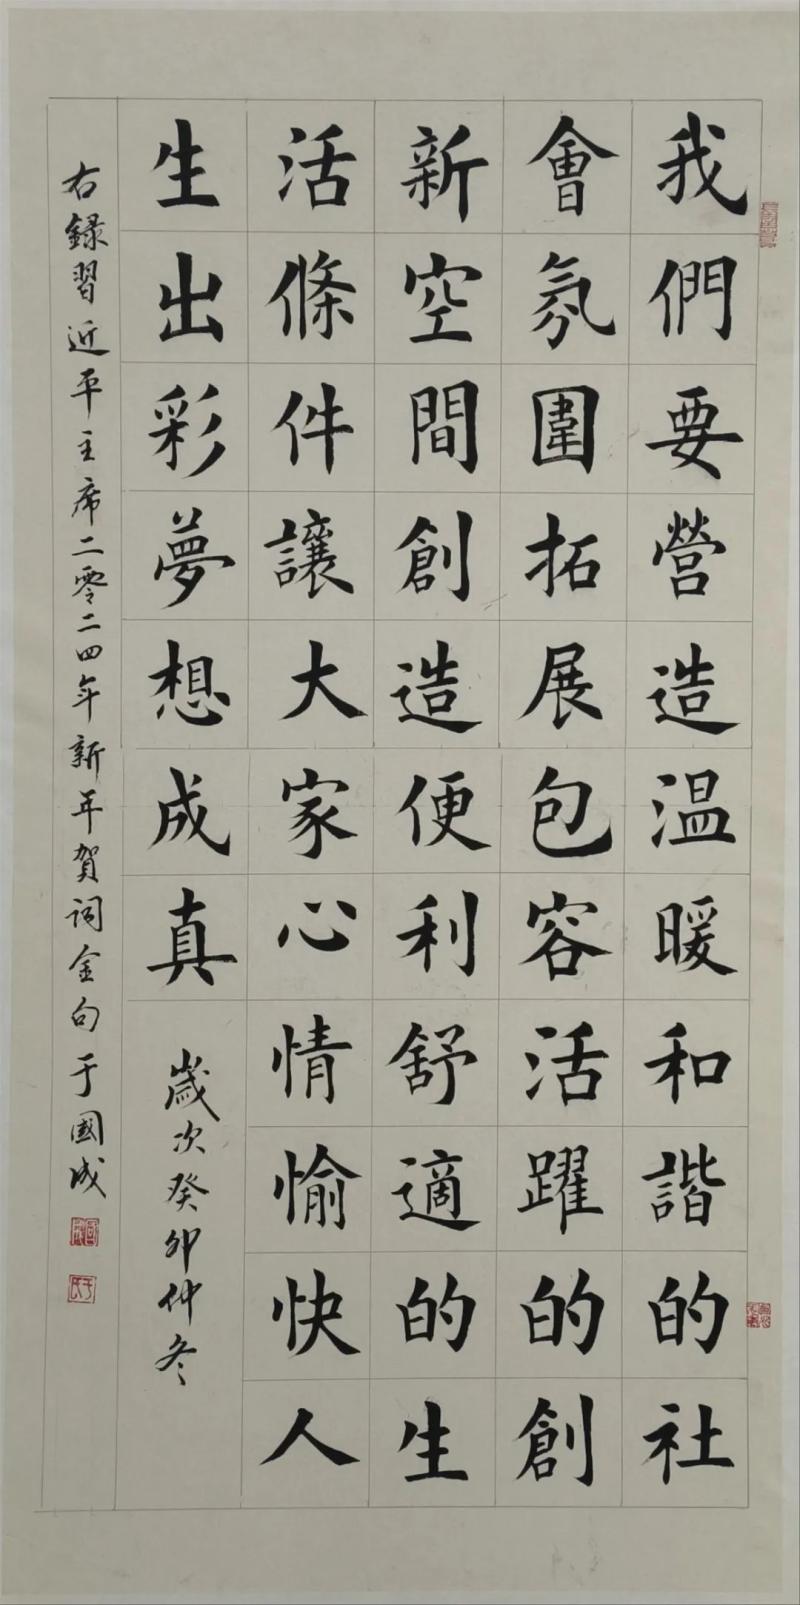 我們要營造溫暖和諧的社
會氛圍拓展包容活躍的創
新空間創造便利舒適的生
活條件讓大家心情愉快人
生出彩夢想成真
歲次癸卯仲冬
右録習近平主席二零二四年新年賀詞金句于國成